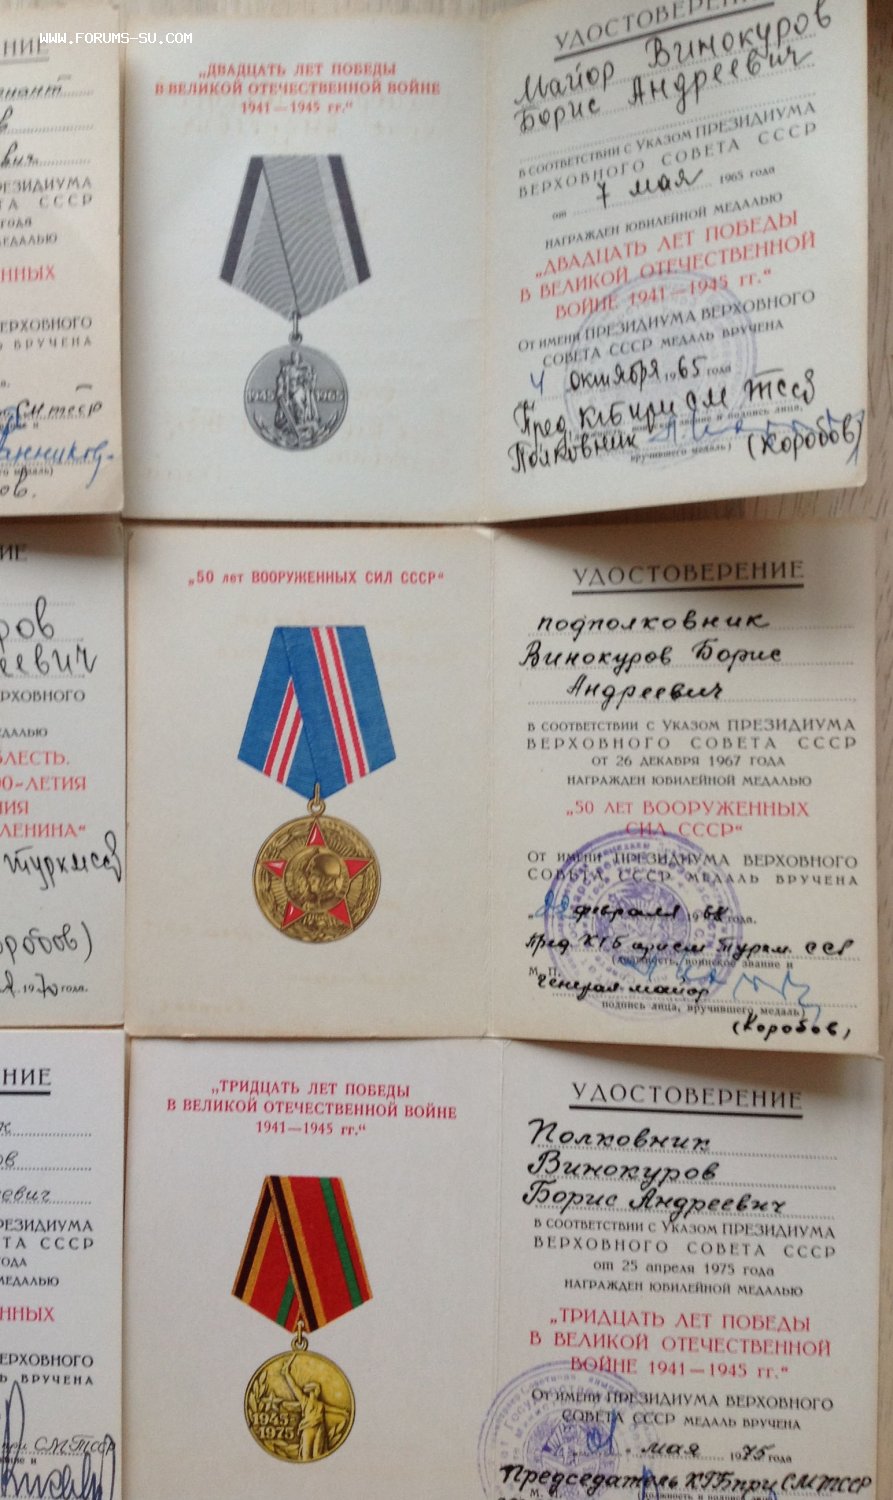 WWW.FORUMS-SU.COM
НИЕ
РЕЗИДИУМА
ТА СССР
ГОДА
МЕДАЛЬЮ
ННЫХ
ВЕРХОВНОГО
Ь ВРУЧЕНА
„ДВАДЦАТЬ ЛЕТ ПОБЕДЫ
В ВЕЛИКОЙ ОТЕЧЕСТВЕННОЙ ВОЙНЕ
1941—1945 гг.“
1945 1965
УДОСТОВЕРЕНИЕ
Майор Винокуров
Борис Андреевич
В СООТВЕТСТВИИ С УКАЗОМ ПРЕЗИДИУМА
ВЕРХОВНОГО СОВЕТА СССР
от 7 мая 1965 года
НАГРАЖДЕН ЮБИЛЕЙНОЙ МЕДАЛЬЮ
„ДВАДЦАТЬ ЛЕТ ПОБЕДЫ
В ВЕЛИКОЙ ОТЕЧЕСТВЕННОЙ
ВОЙНЕ 1941—1945 гг.“
ОТ ИМЕНИ ПРЕЗИДИУМА ВЕРХОВНОГО
СОВЕТА СССР МЕДАЛЬ ВРУЧЕНА
4 октября 1965 года
Пред КГБ при СМ ТССР
Полковник
(Коробов)
вручившего медаль)
НИЕ
ров
еевич
ЕРХОВНОГО
ЕДАЛЬЮ
БЛЕСТЬ.
00-ЛЕТИЯ
НИЯ
ЛЕНИНА“
оробов)
1970 года.
„50 лет ВООРУЖЕННЫХ СИЛ СССР“
УДОСТОВЕРЕНИЕ
подполковник
Винокуров Борис
Андреевич
В СООТВЕТСТВИИ С УКАЗОМ ПРЕЗИДИУМА
ВЕРХОВНОГО СОВЕТА СССР
ОТ 26 ДЕКАБРЯ 1967 ГОДА
НАГРАЖДЕН ЮБИЛЕЙНОЙ МЕДАЛЬЮ
„50 ЛЕТ ВООРУЖЕННЫХ
СИЛ СССР“
ОТ ИМЕНИ ПРЕЗИДИУМА ВЕРХОВНОГО
СОВЕТА СССР МЕДАЛЬ ВРУЧЕНА
февраля 1968 года.
Пред КГБ Туркм. ССР
(должность, воинское звание и
М. П. генерал-майор
подпись лица, вручившего медаль)
(Коробов)
НИЕ
ов
еевич
РЕЗИДИУМА
ТА СССР
ГОДА
МЕДАЛЬЮ
ННЫХ
ЕРХОВНОГО
ВРУЧЕНА
при СМ ТССР
„ТРИДЦАТЬ ЛЕТ ПОБЕДЫ
В ВЕЛИКОЙ ОТЕЧЕСТВЕННОЙ ВОЙНЕ
1941—1945 гг.“
1945
1975
УДОСТОВЕРЕНИЕ
Полковник
Винокуров
Борис Андреевич
В СООТВЕТСТВИИ С УКАЗОМ ПРЕЗИДИУМА
ВЕРХОВНОГО СОВЕТА СССР
от 25 апреля 1975 года
НАГРАЖДЕН ЮБИЛЕЙНОЙ МЕДАЛЬЮ
„ТРИДЦАТЬ ЛЕТ ПОБЕДЫ
В ВЕЛИКОЙ ОТЕЧЕСТВЕННОЙ
ВОЙНЕ 1941—1945 гг.“
ОТ ИМЕНИ ПРЕЗИДИУМА ВЕРХОВНОГО
СОВЕТА СССР МЕДАЛЬ ВРУЧЕНА
мая 1975 года
Председатель КГБ при СМ ТССР